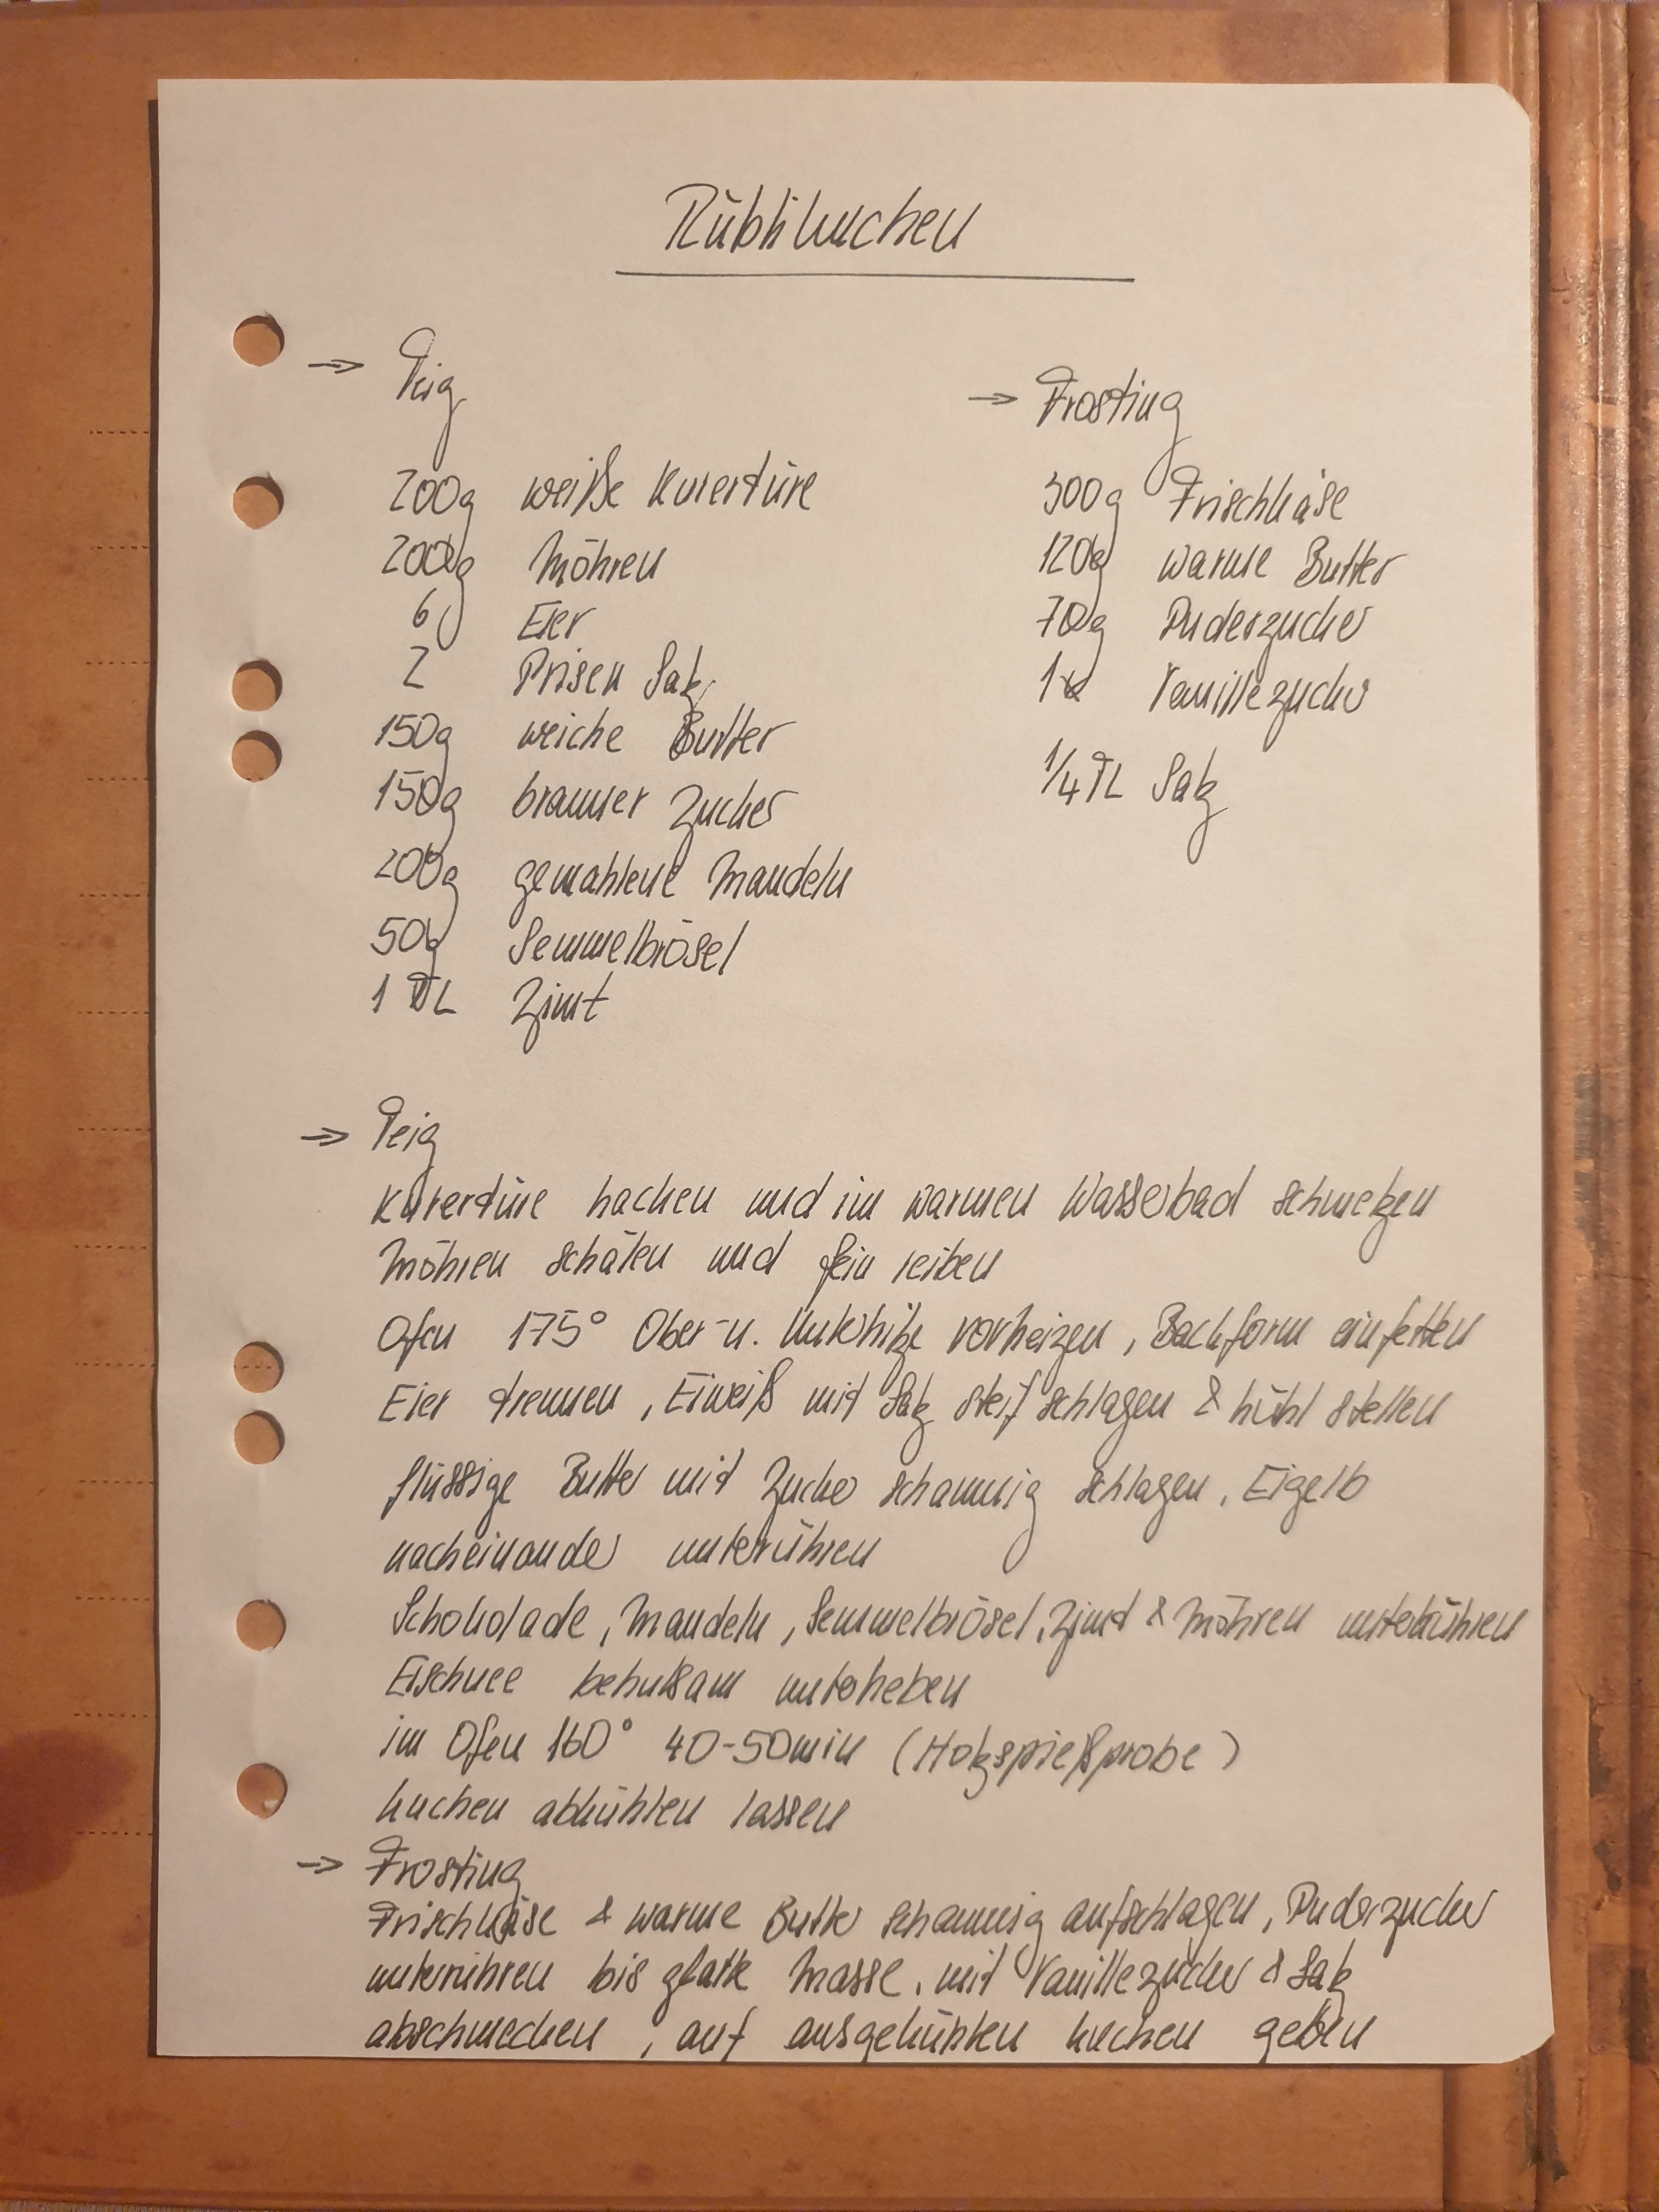 Rüblikuchen
→ Teig
200g weiße Kuvertüre
200g Möhren
6 Eier
2 Prisen Salz
150g weiche Butter
150g brauner Zucker
200g gemahlene Mandeln
50g Semmelbrösel
1 TL Zimt
→ Frosting
300g Frischkäse
120g warme Butter
70g Puderzucker
1x Vanillezucker
1/4 TL Salz
→ Teig
Kuvertüre hacken und im warmen Wasserbad schmelzen
Möhren schälen und fein reiben
Ofen 175° Ober-u. Unterhitze vorheizen, Backform einfetten
Eier trennen, Eiweiß mit Salz steif schlagen & kühl stellen
flüssige Butter mit Zucker schaumig schlagen, Eigelb
nacheinander unterrühren
Schokolade, Mandeln, Semmelbrösel, Zimt & Möhren unterrühren
Eischnee behutsam unterheben
im Ofen 160° 40-50min (Holzspießprobe)
Kuchen abkühlen lassen
→ Frosting
Frischkäse & warme Butter schaumig aufschlagen, Puderzucker
unterrühren bis glatte Masse, mit Vanillezucker & Salz
abschmecken, auf ausgekühlten Kuchen geben